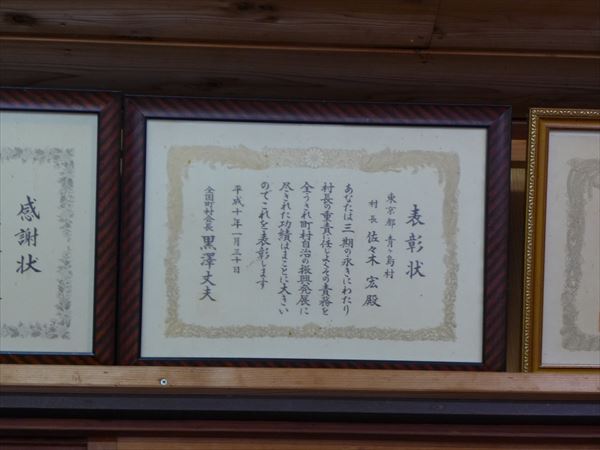 表彰状
東京都青ヶ島村
村長 佐々木宏殿
あなたは三期の永きにわたり
村長の重責に任じよくその責務を
全うされ町村自治の振興発展に
尽された功績はまことに大きい
のでこれを表彰します
平成十年一月三十日
全国町村会長 黒澤丈夫
感謝状